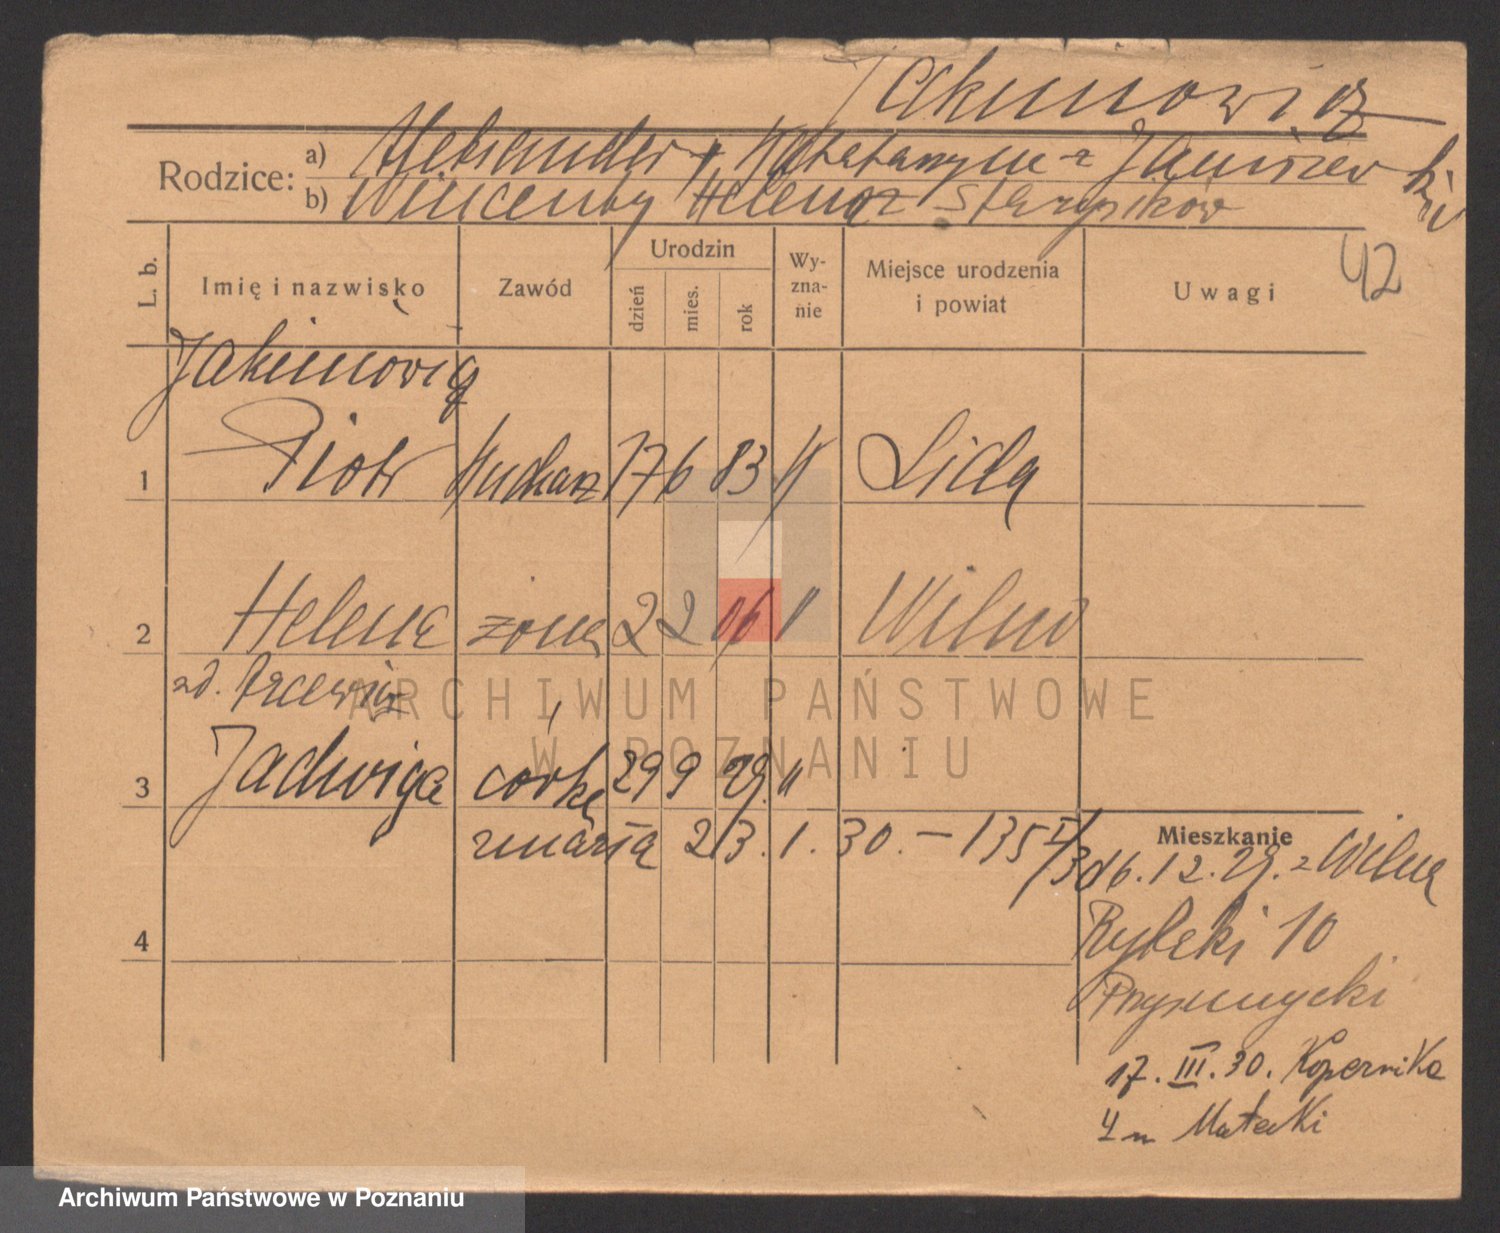 Jakimowicz
Rodzice: a) Aleksander, Katarzyna z Janiszewskich
b) Wincenty Helena
42
L. b. Imię i nazwisko Zawód Urodzin dzień mies. rok Wyznanie Miejsce urodzenia i powiat Uwagi
Jakimowicz
1 Piotr kucharz 17 6 83 Lida
2 Helena żona 22 06 " Wilno
zd.
3 Jadwiga córka 29 9 29. "
zmarła 23. 1. 30. – 135
Mieszkanie
6. 12. 29. z Wilna
4
Rybaki 10
17. III. 30. Kopernika
4 m Matecki
ARCHIWUM PAŃSTWOWE
W POZNANIU
Archiwum Państwowe w Poznaniu